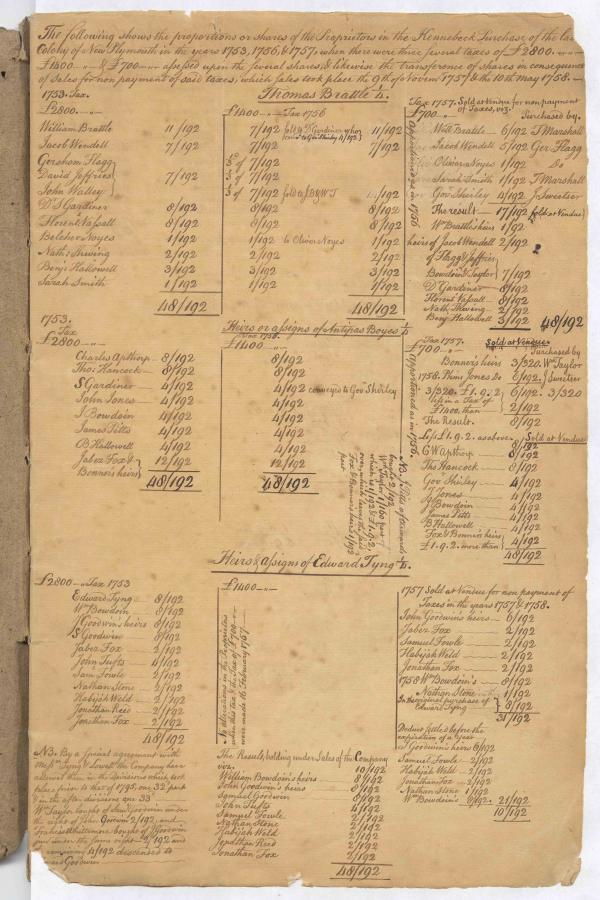 The following shows the proportions or shares of the Proprietors in the Kennebeck Purchase of the late
Colony of New Plymouth in the years 1753, 1756, & 1757, when there were three several taxes of £2800.
£1400 & £700 assessed upon the several shares, & likewise the transference of shares in consequence
of Sales for non payment of said taxes, which sales took place the 9th of Novem 1757 & the 10th may 1758.
Thomas Brattle ¼.
1753. Tax.
£2800.
William Brattle 11/192
Jacob Wendell 7/192
Gershom Flagg
David Jeffries 7/192
John Walley
Dr S Gardiner 8/192
Florent Vassall 8/192
Belcher Noyes 1/192
Nath: Thwing 2/192
Benj Hallowell 3/192
Sarah Smith 1/192
48/192
£1400 Tax 1756
7/192 sold S Gardiner who 11/192
Gov Shirley 4/192
7/192 7/192
of 7/192
of 7/192
of 7/192 sold
8/192 8/192
8/192 8/192
1/192 to Oliver Noyes 1/192
2/192 2/192
3/192 3/192
1/192 1/192
48/192
Tax 1757. Sold at Vendue for non payment
£700 of Taxes, viz.
Purchased by.
Apportioned as in 1756
Will Brattle 6/192 T Marshall
Jacob Wendell 5/192 Ger Flagg
Oliver Noyes 1/192 Do
Sarah Smith 1/192 T Marshall
Gov Shirley 4/192 J Sweetser
The result 17/192 sold at Vendue
Wm Brattle's heirs 1/92
heirs of Jacob Wendell 2/192
of Flagg & Jeffries
Bowdoin & Taylor 7/192
Dr Gardiner 8/192
Florent Vassall 8/192
Nath Thwing 2/192
Benj Hallowell 3/192 48/192
Heirs or assigns of Antipas Boyes ¼
1753.
Tax
£2800
Charles Apthorp 8/192
Tho: Hancock 8/192
S Gardiner 4/192
John Jones 4/192
J Bowdoin 4/192
James Pitts 4/192
B Hallowell 4/192
Jabez Fox &
Bonner's heirs 12/192
48/192
Tax 1756.
£1400
8/192
8/192
4/192 convey'd to Gov Shirley
4/192
4/192
4/192
4/192
12/192
48/192
NB. J Pitts afterwards
bought 2/192
Wm Taylor 1/160
which is 1/192 & £1.9.2.
over, which being the said
Fox & Bonner's heirs 1/192
part
Tax 1757. Sold at Vendue
£700 Purchased by
Apportioned as in 1756.
Bonner's heirs 3/320. Wm Taylor
1758. Phins Jones Do 6/192. J Sweetser
3/320. £1.9.2 6/192. 3/320
less in a Tax of
£1400. than 2/192
The Result. 8/192
Less £1.9.2. as above. Sold at Vendue
C W Apthorp 8/192
Tho: Hancock 8/192
Gov Shirley 4/192
J Jones 4/192
J Bowdoin 4/192
James Pitts 4/192
B Hallowell 4/192
Fox & Bonner heirs 4/192
£1.9.2. more than
48/192
Heirs & assigns of Edward Tyng ¼.
£2800 Tax 1753
Edward Tyng 8/192
Wm Bowdoin 8/192
J Goodwin's heirs 8/192
S Goodwin 8/192
Jabez Fox 2/192
John Tufts 4/192
Sam Fowle 2/192
Nathan Stone 2/192
Habijah Weld 2/192
Jonathan Reed 2/192
Jonathan Fox 2/192
48/192
£1400
No alterations in the Proprietors
when this tax & the Tax of £700
were made 16 February 1757
1757 Sold at Vendue for non payment of
Taxes in the years 1757 & 1758.
John Goodwin's heirs 6/192
Jabez Fox 2/192
Samuel Fowle 2/192
Habijah Weld 2/192
Jonathan Fox 2/192
1758 Wm Bowdoin's 8/192
Nathan Stone 1/192
In the original purchase of
Edward Tyng 8/192
31/192
Deduct settled before the
expiration of a Year
J Goodwin's heirs 6/192
Samuel Fowle 2/192
Habijah Weld 2/192
Jonathan Fox 2/192
Nathan Stone 1/192
Wm Bowdoin's 8/192 21/192
10/192
NB. By a special agreement with
Messrs Tyng & Lowell the Company have
allowed them in the Divisions which took
place prior to that of 1795, one 32 part
& in the after divisions one 33
W Taylor bought of Saml Goodwin under
the right of John Goodwin 2/192, and
Francis Whittemore bought of J Goodwin
under the same right 2/192 and
remaining 4/192 descended to
Goodwin
The Result, holding under Sales of the Company
viz. 10/192
William Bowdoin's heirs 8/192
John Goodwin's heirs 8/192
Samuel Goodwin 8/192
John Tufts 4/192
Samuel Fowle 2/192
Nathan Stone 2/192
Habijah Weld 2/192
Jonathan Reed 2/192
Jonathan Fox 2/192
48/192